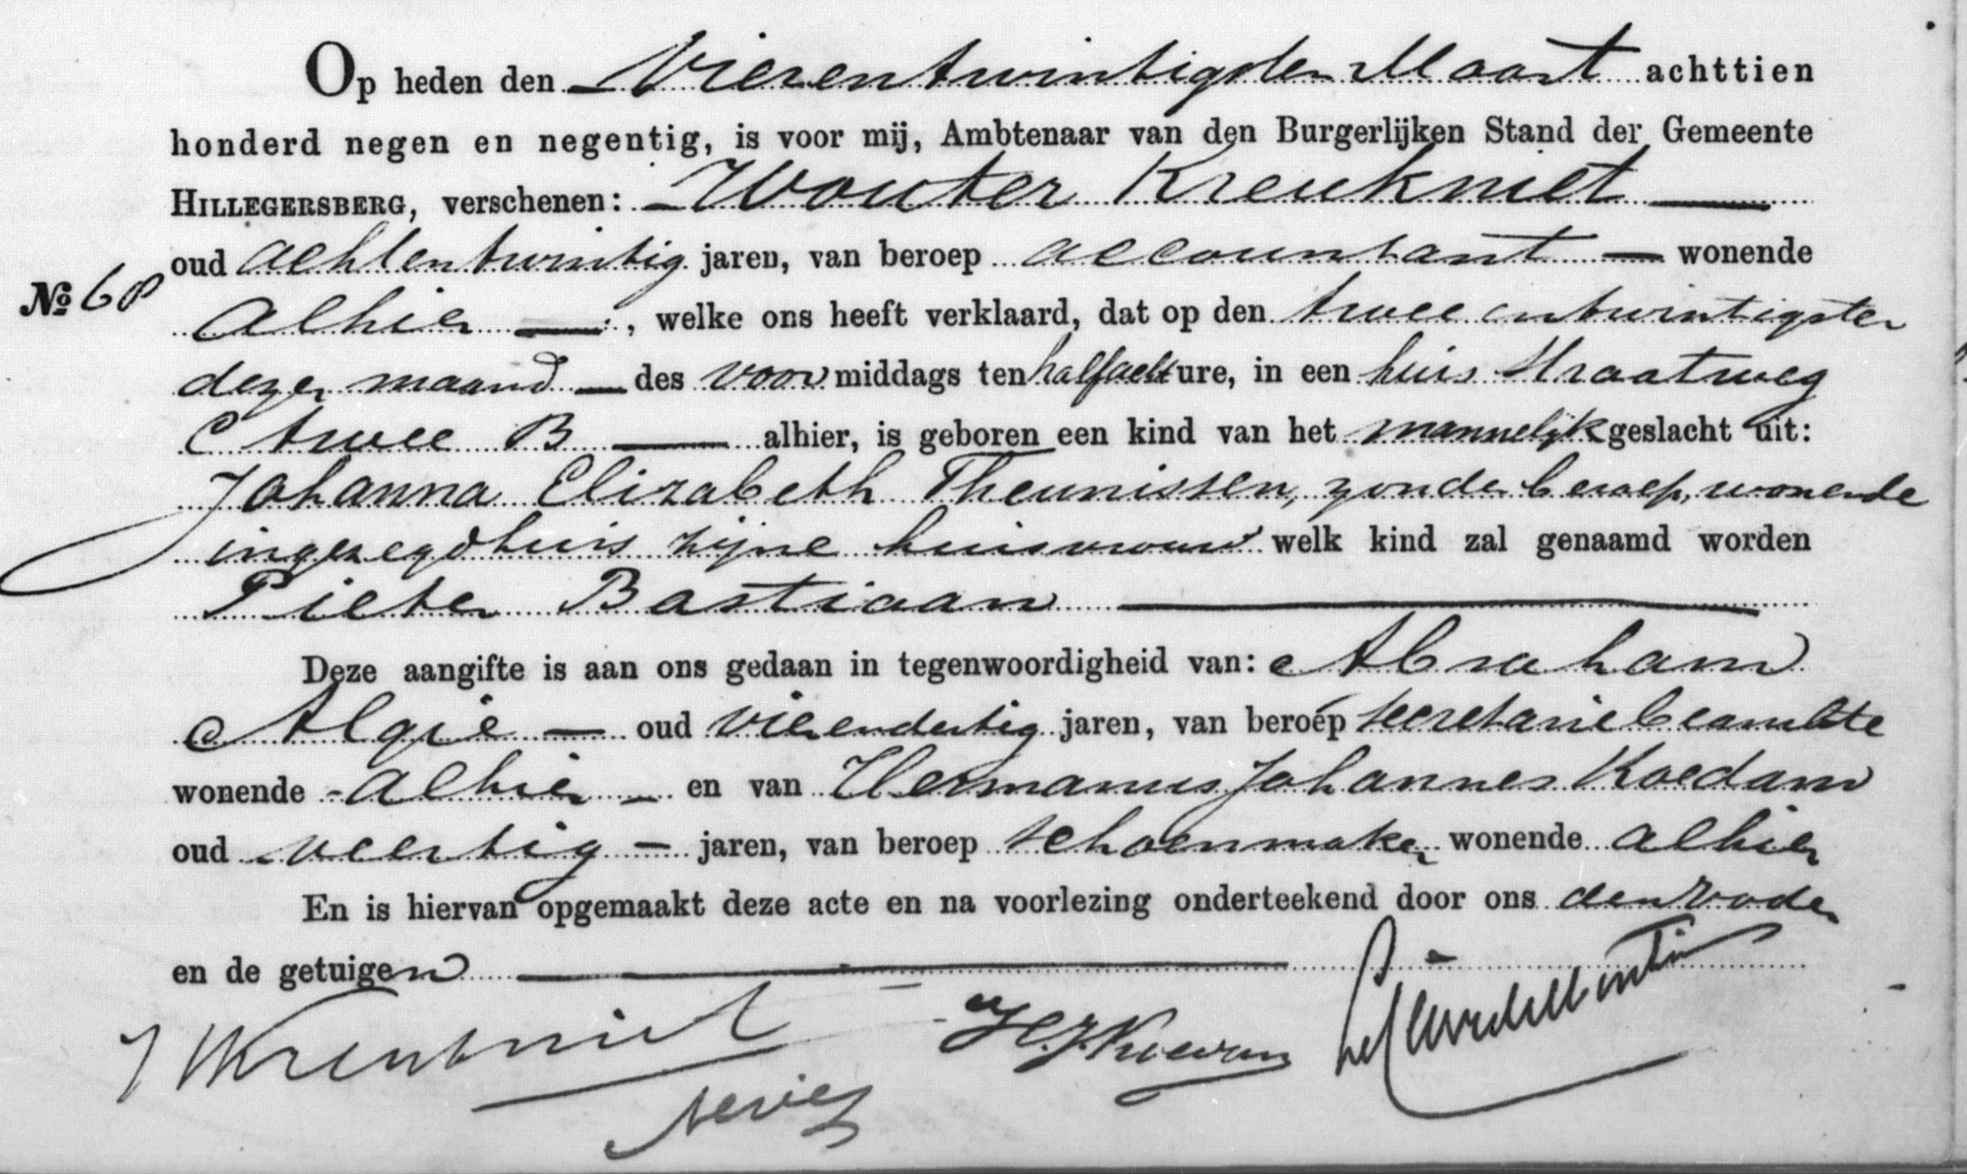 Op heden den Vierentwintigsten Maart achttien
honderd negen en negentig, is voor mij, Ambtenaar van den Burgerlijken Stand der Gemeente
HILLEGERSBERG, verschenen: Wouter Kreukniet
oud achtentwintig jaren, van beroep accountant wonende
No 68
alhier, welke ons heeft verklaard, dat op den twee entwintigsten
dezer maand des voormiddags ten halfacht ure, in een huis Straatweg
C twee B alhier, is geboren een kind van het mannelijk geslacht uit:
Johanna Elizabeth Theunissen, zonder beroep, wonende
in gezegd huis zijne huisvrouw welk kind zal genaamd worden
Pieter Bastiaan
Deze aangifte is aan ons gedaan in tegenwoordigheid van: Abraham
Algie oud vierendertig jaren, van beroep secretariebeambte
wonende alhier en van Hermanus Johannes Koedam
oud veertig jaren, van beroep schoenmaker wonende alhier
En is hiervan opgemaakt deze acte en na voorlezing onderteekend door ons den vader
en de getuigen
WKreukniet
H.J. Koedam